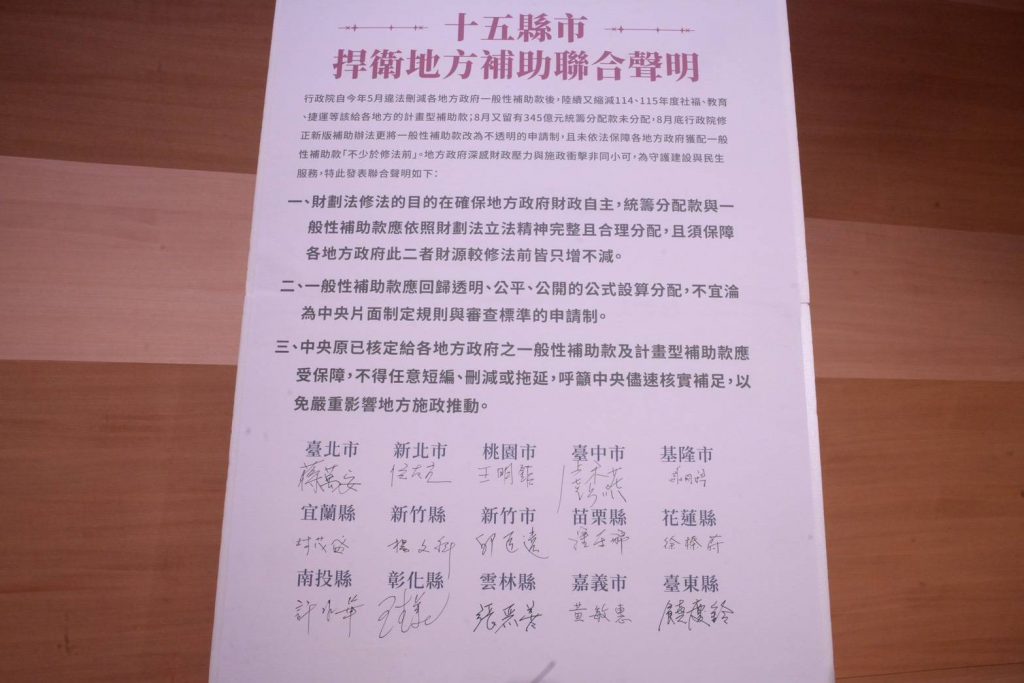 十五縣市
捍衛地方補助聯合聲明
行政院自今年5月違法刪減各地方政府一般性補助款後，陸續又縮減114、115年度社福、教育
、捷運等該給各地方的計畫型補助款；8月又留有345億元統籌分配款未分配，8月底行政院修
正新版補助辦法更將一般性補助款改為不透明的申請制，且未依法保障各地方政府獲配一般
性補助款「不少於修法前」。地方政府深感財政壓力與施政衝擊非同小可，為守護建設與民生
服務，特此發表聯合聲明如下：
一、財劃法修法的目的在確保地方政府財政自主，統籌分配款與一
般性補助款應依照財劃法立法精神完整且合理分配，且須保障
各地方政府此二者財源較修法前皆只增不減。
二、一般性補助款應回歸透明、公平、公開的公式設算分配，不宜淪
為中央片面制定規則與審查標準的申請制。
三、中央原已核定給各地方政府之一般性補助款及計畫型補助款應
受保障，不得任意短編、刪減或拖延，呼籲中央儘速核實補足，以
免嚴重影響地方施政推動。
臺北市 新北市 桃園市 臺中市 基隆市
蔣萬安
宜蘭縣 新竹縣 新竹市 苗栗縣 花蓮縣
楊文科 邱臣遠 徐榛蔚
南投縣 彰化縣 雲林縣 嘉義市 臺東縣
許淑華 張麗善 黃敏惠 饒慶鈴